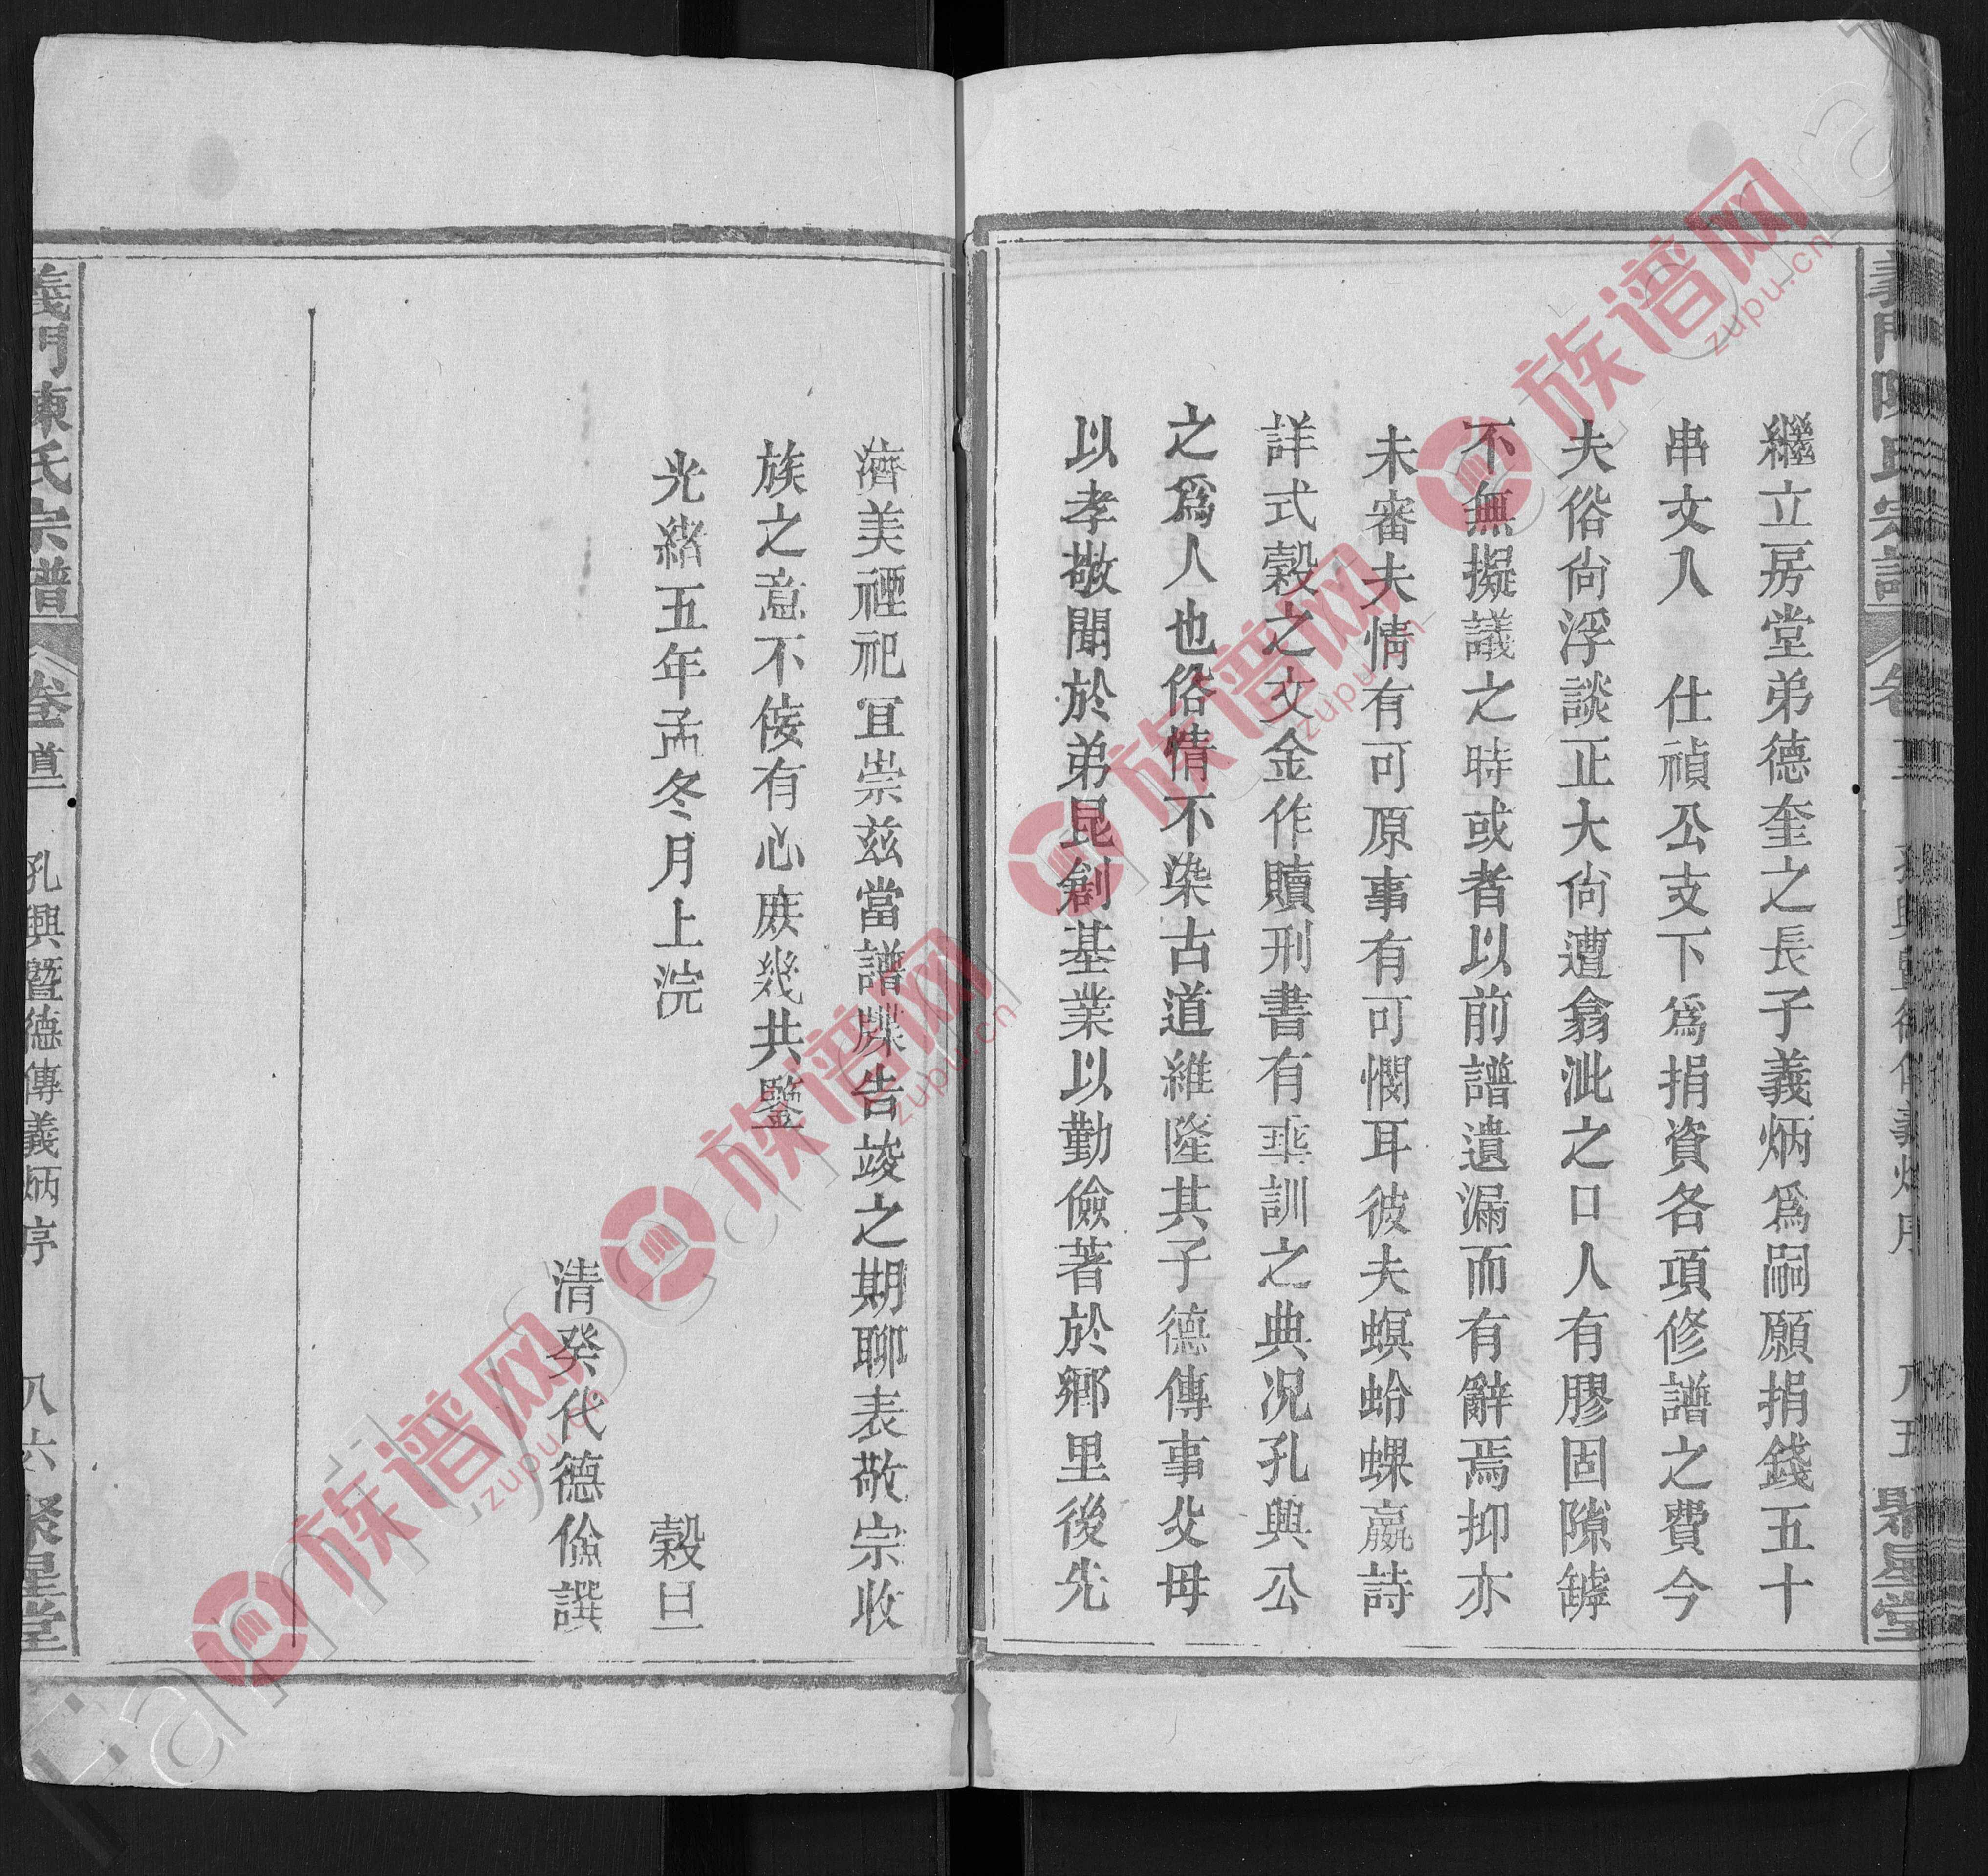 繼立房堂弟德奎之長子義炳爲嗣願捐錢五十
串文入　仕禎公支下爲捐資各項修譜之費今
夫俗尙浮談正大尙遭翕泚之口人有膠固隙罅
不無擬議之時或者以前譜遺漏而有辭焉抑亦
未審夫情有可原事有可憫耳彼夫螟蛉蜾蠃詩
詳式穀之文金作贖刑書有垂訓之典况孔興公
之爲人也俗情不染古道維隆其子德傳事父母
以孝敬聞於弟昆創基業以勤儉著於鄉里後先
濟美禋祀宜崇兹當譜牒告竣之期聊表敬宗收
族之意不倭有心庶幾共鑒
光緒五年孟冬月上浣　穀旦
清癸代德儉譔
義門陳氏宗譜　卷首　孔興暨德傳義炳序　八六　聚星堂
義門陳氏宗譜　卷　八五　聚星堂
族谱网
zupu.cn